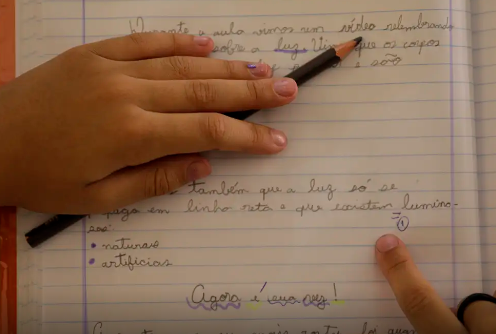 Durante a aula vimos um vídeo relembrando
sobre a luz. Vimos que os corpos
e são
também que a luz só se
propaga em linha reta e que existem lumino-
sos
①
• naturais
• artificiais
Agora é sua vez!